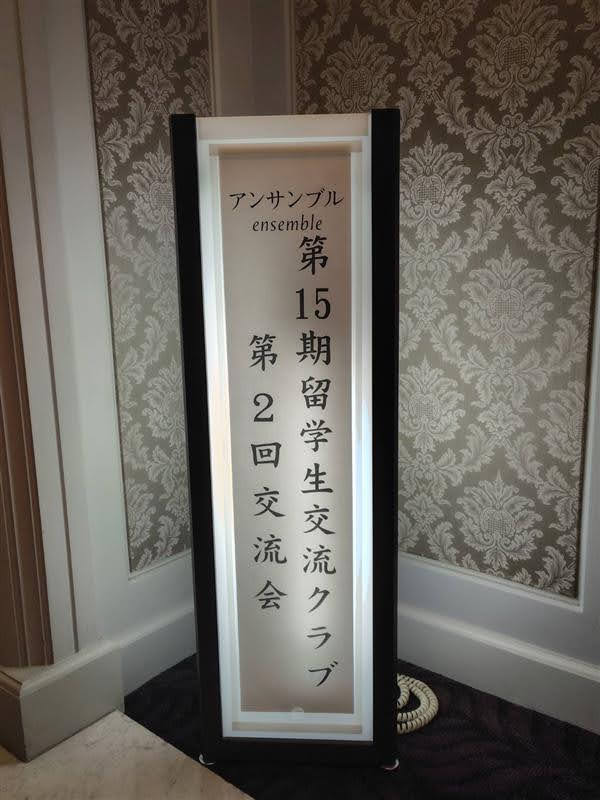 アンサンブル
ensemble
第15期留学生交流クラブ
第2回交流会